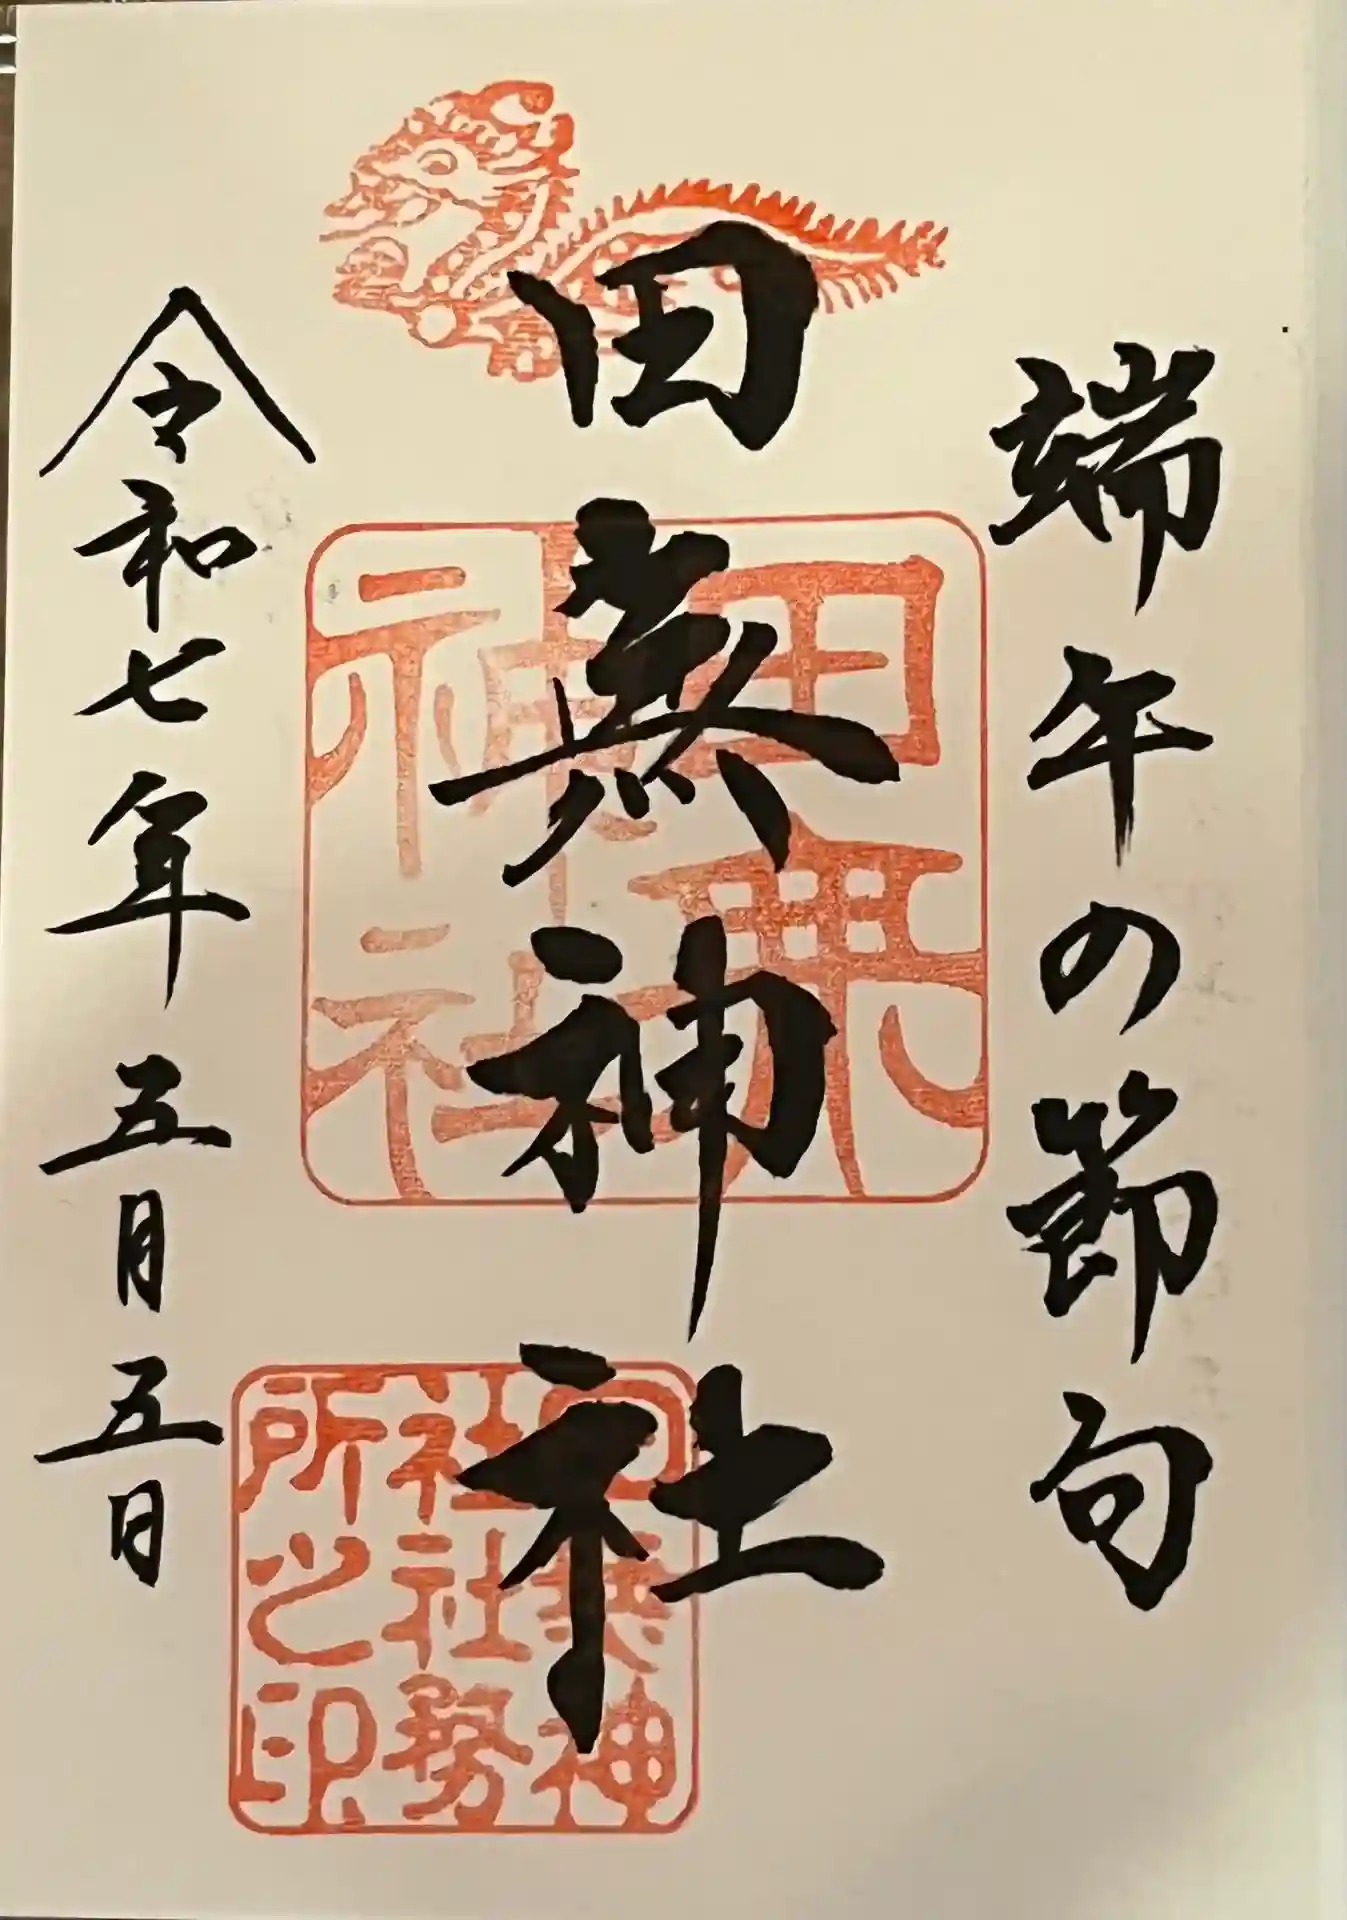 端午の節句
田無神社
令和七年五月五日
田無
神社
田無神
社社務
所之印